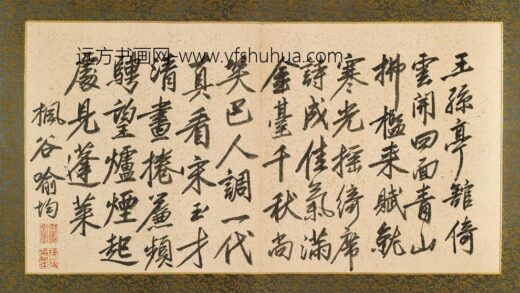 远方书画网-www.yfshuhua.com
王孫亭館倚
雲開四面青山
拂檻來賦就
寒光摇綺席
詩成佳氣滿
金臺千秋尚
笑巴人調一代
真看宋玉才
清晝捲簾頻
騁望爐煙起
處見蓬萊
楓谷喻均